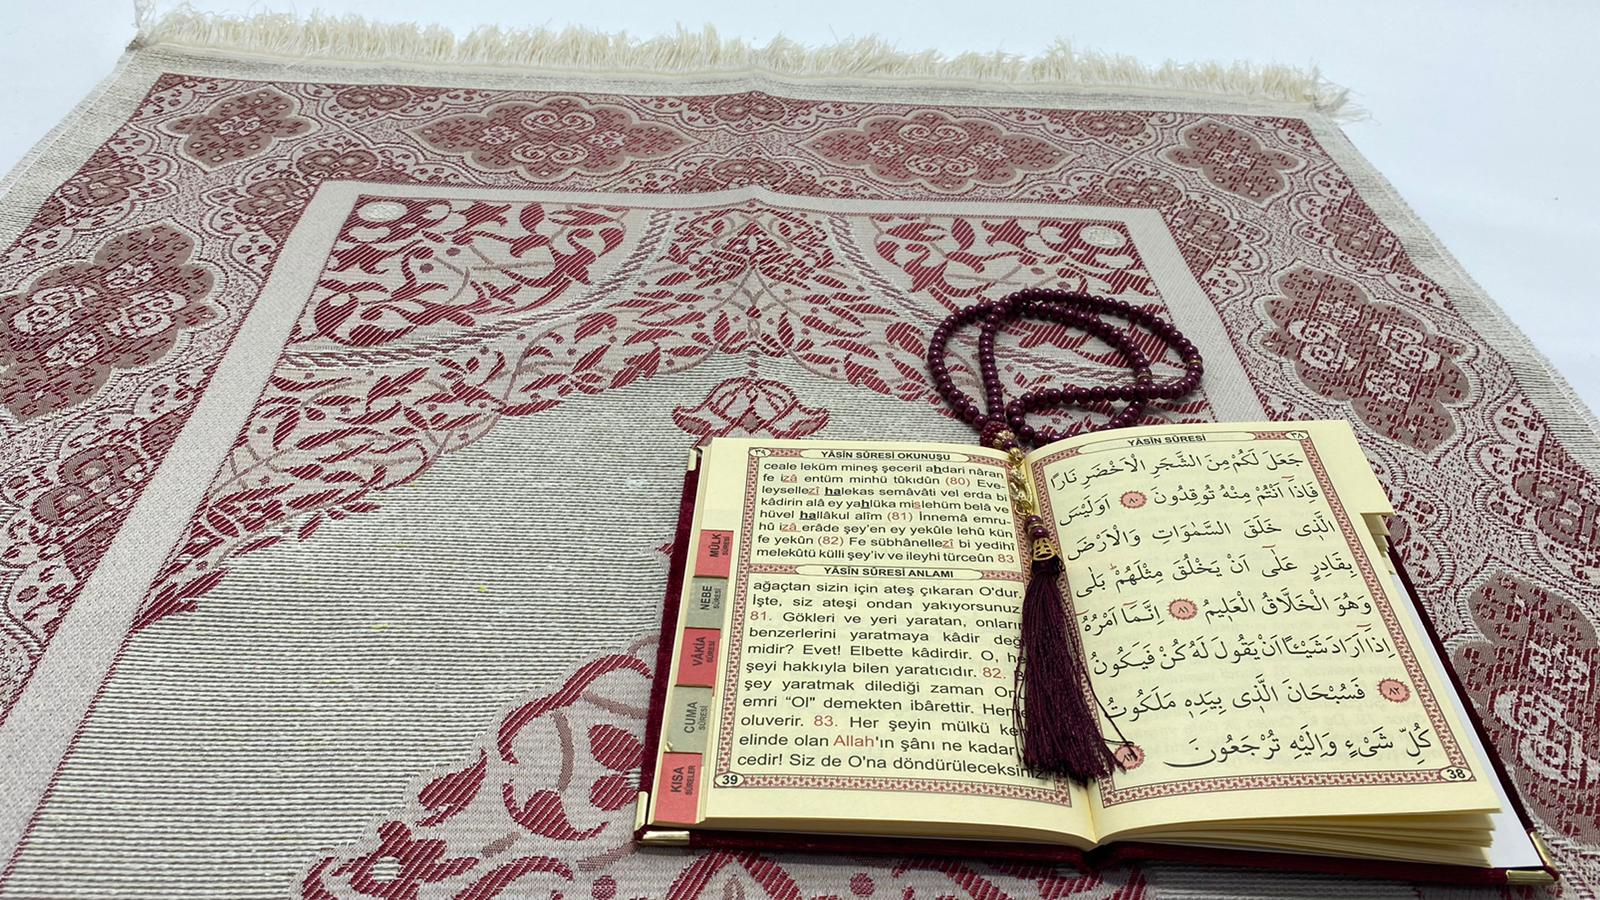 ٣٩
YÂSÎN SÛRESİ OKUNUŞU
ceale leküm mineş şeceril ahdari nâran
fe izâ entüm minhü tûkıdûn (80) Eve-
leysellezî halekas semâvâti vel erda bi
kâdirin alâ ey yahlüka mislehüm belâ ve
hüvel hallâkul alîm (81) İnnemâ emru-
hû izâ erâde şey'en ey yekûle lehû kün
fe yekûn (82) Fe sübhânellezî bi yedihî
melekûtü külli şey'iv ve ileyhi türceûn 83
YÂSÎN SÛRESİ ANLAMI
ağaçtan sizin için ateş çıkaran O'dur.
İşte, siz ateşi ondan yakıyorsunuz
81. Gökleri ve yeri yaratan, onların
benzerlerini yaratmaya kâdir değ
midir? Evet! Elbette kâdirdir. O, he
şeyi hakkıyla bilen yaratıcıdır. 82.
şey yaratmak dilediği zaman
emri "Ol" demekten ibârettir. Heme
oluverir. 83. Her şeyin mülkü ke
elinde olan Allah'ın şânı ne kadar
cedir! Siz de O'na döndürüleceksiniz
39
MÜLK SÛRESİ
NEBE SÛRESİ
VÂKIA SÛRESİ
CUMA SÛRESİ
KISA SÛRELER
YÂSÎN SÛRESİ
٣٨
جَعَلَ لَكُمْ مِنَ الشَّجَرِ الْاَخْضَرِ نَارًا
فَاِذَٓا اَنْتُمْ مِنْهُ تُوقِدُونَ ٨٠ اَوَلَيْسَ
الَّذٖي خَلَقَ السَّمٰوَاتِ وَالْاَرْضَ
بِقَادِرٍ عَلٰٓى اَنْ يَخْلُقَ مِثْلَهُمْ بَلٰى
وَهُوَ الْخَلَّاقُ الْعَلٖيمُ ٨١ اِنَّمَٓا اَمْرُهُٓ
اِذَٓا اَرَادَ شَيْـًٔا اَنْ يَقُولَ لَهُ كُنْ فَيَكُونُ
٨٢ فَسُبْحَانَ الَّذٖي بِيَدِهٖ مَلَكُوتُ
كُلِّ شَيْءٍ وَاِلَيْهِ تُرْجَعُونَ ٨٣
38